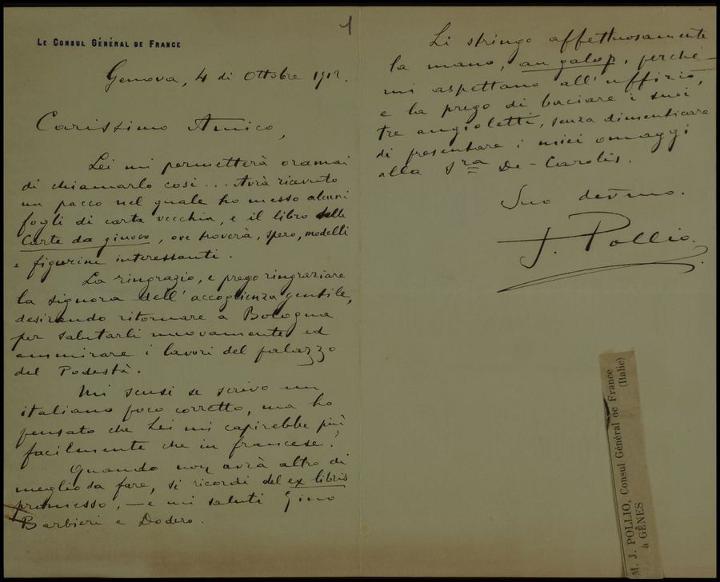 1
LE CONSUL GÉNÉRAL DE FRANCE
Genova, 4 di Ottobre 1912.
Carissimo Amico,
Lei mi permetterà oramai
di chiamarlo così... Avrà ricevuto
un pacco nel quale ho messo alcuni
fogli di carta vecchia, e il libro delle
Carte da giuoco, ove troverà, spero, modelli
e figurini interessanti.
La ringrazio, e prego ringraziare
la signora dell'accoglienza gentile,
desirando ritornare a Bologna
per salutarli nuovamente ed
ammirare i lavori del palazzo
del Podestà.
Mi scusi se scrivo un
italiano poco corretto, ma ho
pensato che Lei mi capirebbe più
facilmente che in francese!
Quando non avrà altro di
meglio da fare, si ricordi del ex libris
promesso, — e mi saluti Gino
Barbieri e Dodero.
Li stringo affettuosamente
la mano, au galop, perché
mi aspettano all'uffizio,
e la prego di baciare i suoi
tre angioletti, senza dimenticare
di presentare i miei omaggi
alla Sra De-Carolis.
Suo devmo.
J. Pollio.
M. J. POLLIO, Consul Général de France
à GÊNES (Italie)